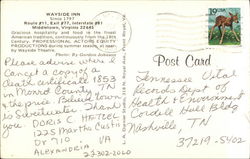 WAYSIDE INN
Since 1797
Route #11, Exit #77, Interstate #81
Middletown, Virginia 22645
Gracious hospitality and food in the finest
American tradition, continuously from the 18th
Century. PROFESSIONAL ACTORS EQUITY
PRODUCTIONS during summer season at near-
by Wayside Theatre.
Photo: By Gordon Johnson
Please advise when I
can get a copy of a
death certificate 1853
Monrod County TN
& the price. Behind
is Sweetwater. Thank
you. DORIS C. HETZEL
1225 Martha Custis
Dr 710 VA
ALEXANDRIA
22302-2020
19 USA
Post Card
Tennessee Vital
Records Dept of
Health & Environment
Cordell Hull Bldg
Nashville, TN
37219-5402